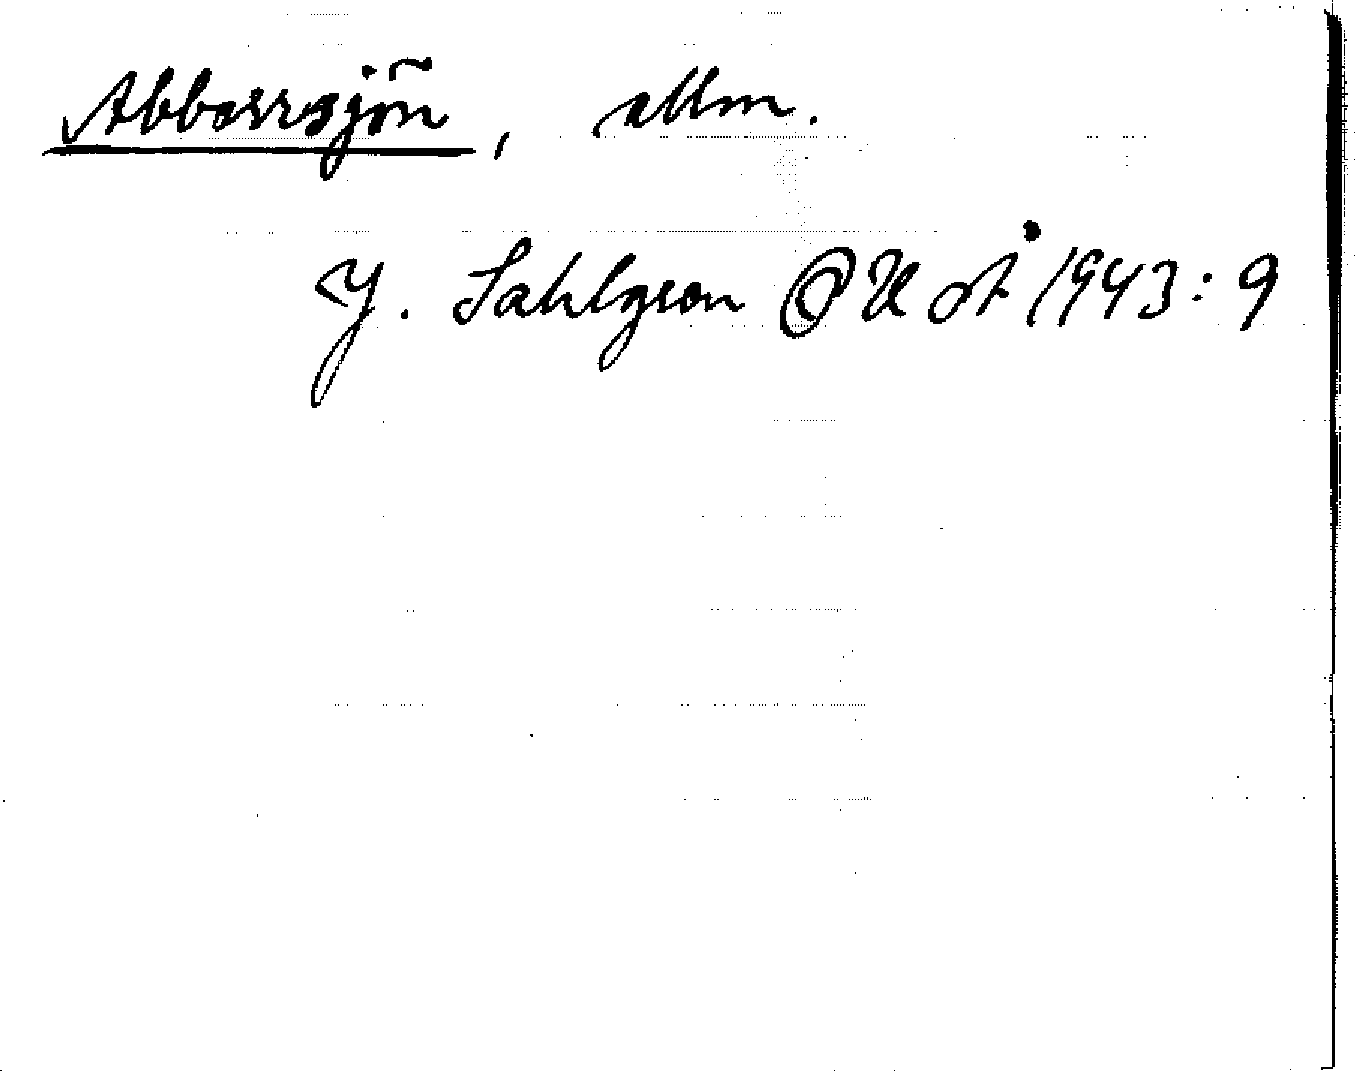 Abborrsjön, allm.
J. Sahlgren OUoÅ 1943:9